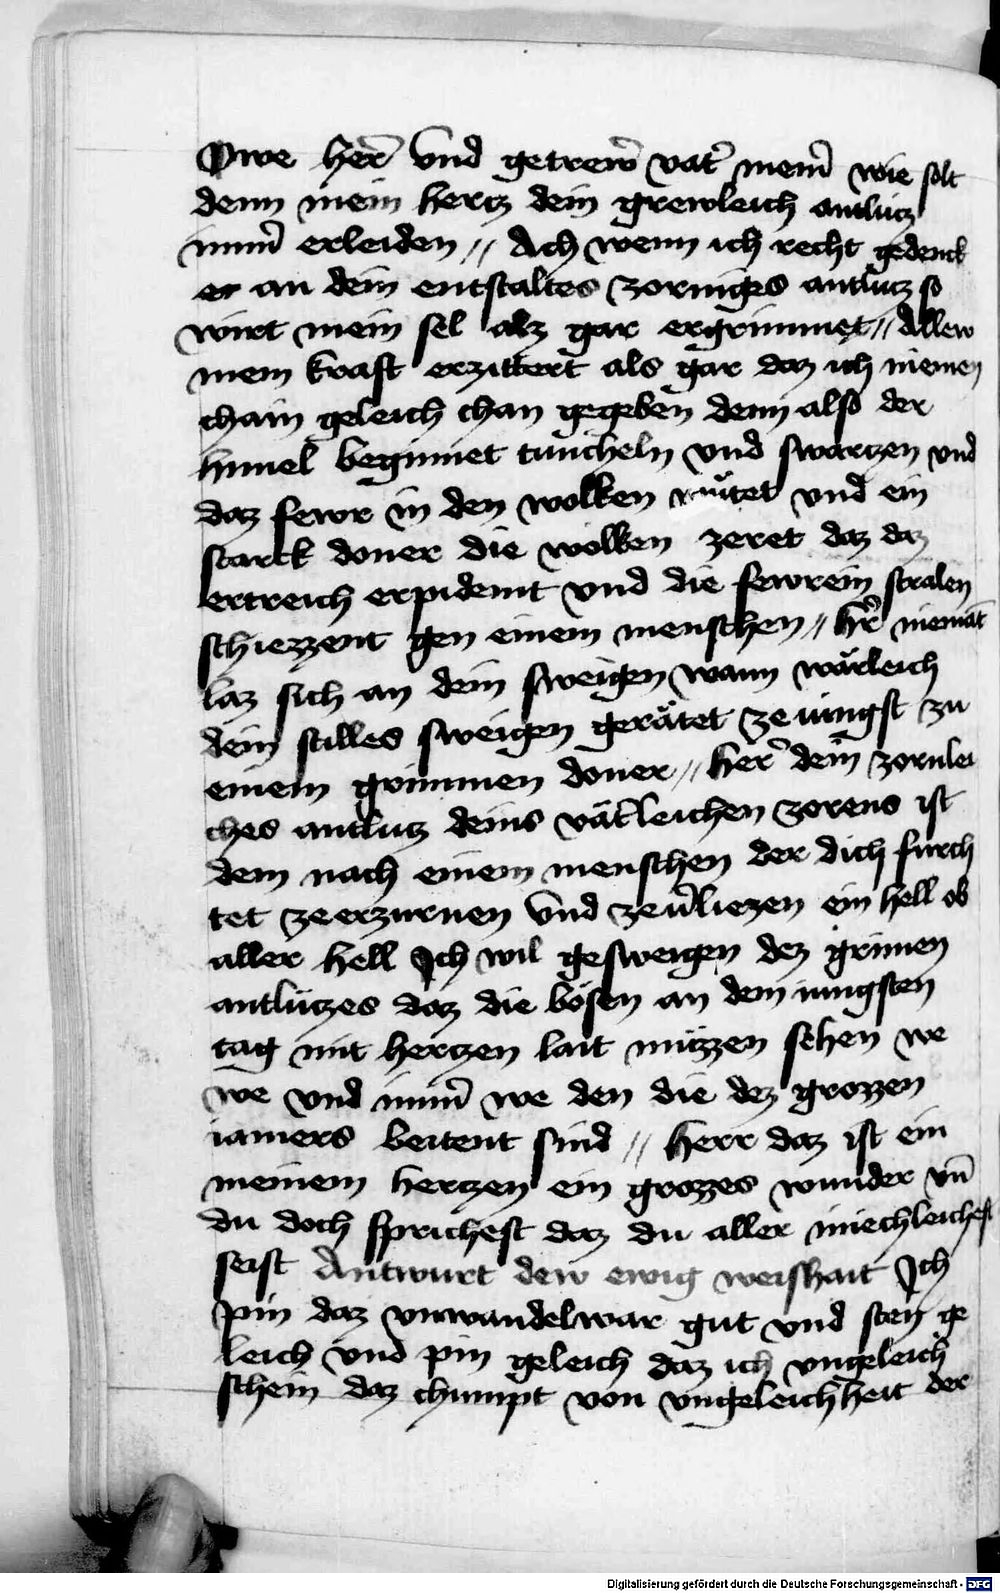 Owe her̄ vnd getrew̄ vat̄ mein̄ wie solt
denn mein hertz dein grewleich antlutz
im̄m̄ erleiden // Ach wenn ich recht gedenck
er an dein entstaltes zorniges antlutz so
wirt mein sel alz gar ergrimmet // Allew
mein kraft erzittert als gar daz ich niemen
chain geleich chan gegeben denn also der
himel beginnet tuncheln vnd swartzen vnd
daz fewr in den wolken wuͤtet vnd ein
starck doner die wolken zeret daz daz
ertreich erpidemt vnd die fewrein stralen
schiezzent gen einem menschen // hr̄ niemāt
laz sich an dein sweigen wann waͤrleich
dein stilles sweigen geraͤtet ze iungst zu
einem grimmen doner // her̄ dein zornlei
ches antlutz deins vaͤt̄leichen zorens ist
dem nach einem menschen der dich furch
tet ze erzurnen vnd ze v̄liezen ein hell ob
aller hell Ich wil gesweigen dez grimen
antlützes daz die boͤsen an dem iungsten
tag mit hertzen lait müzzen sehen we
we vnd im̄m̄ we den die dez grozzen
iamers beitent sind // herr daz ist ein
meinem hertzen ein grozzes wunder vn̄
du doch sprichest daz du aller miechleichest
seist Antwurt dew ewig weishait Ich
pin daz vnwandelwar gut vnd sten ge
leich vnd pin geleich daz ich vngeleich
schein daz chumpt von vngeleichheit der
Digitalisierung gefördert durch die Deutsche Forschungsgemeinschaft - DFG